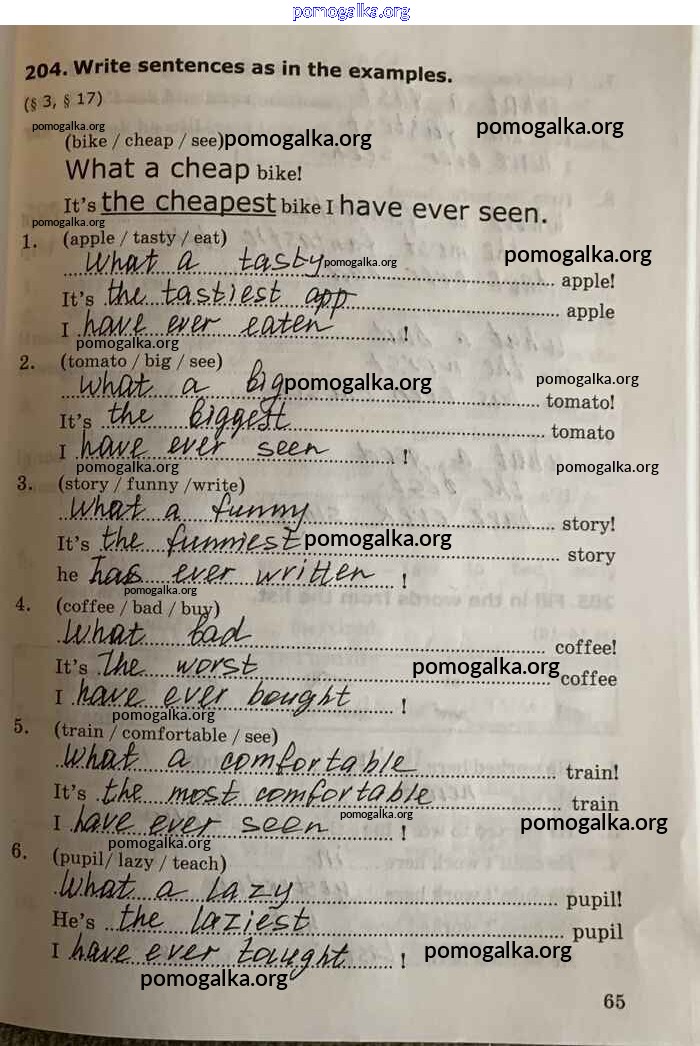 pomogalka.org
204. Write sentences as in the examples.
(§ 3, § 17)
pomogalka.org
(bike / cheap / see)pomogalka.org pomogalka.org
What a cheap bike!
It's the cheapest bike I have ever seen.
pomogalka.org
1. (apple / tasty / eat)
What a tasty pomogalka.org pomogalka.org apple!
It's the tastiest app apple
I have ever eaten !
pomogalka.org
2. (tomato / big / see)
What a big pomogalka.org pomogalka.org tomato!
It's the biggest tomato
I have ever seen !
pomogalka.org pomogalka.org
3. (story / funny /write)
What a funny story!
It's the funniest pomogalka.org story
he has ever written !
pomogalka.org
4. (coffee / bad / buy)
What bad coffee!
It's the worst pomogalka.org coffee
I have ever bought !
pomogalka.org
5. (train / comfortable / see)
What a comfortable train!
It's the most comfortable train
I have ever seen pomogalka.org ! pomogalka.org
pomogalka.org
6. (pupil/ lazy / teach)
What a lazy pupil!
He's the laziest pupil
I have ever taught ! pomogalka.org
pomogalka.org
65